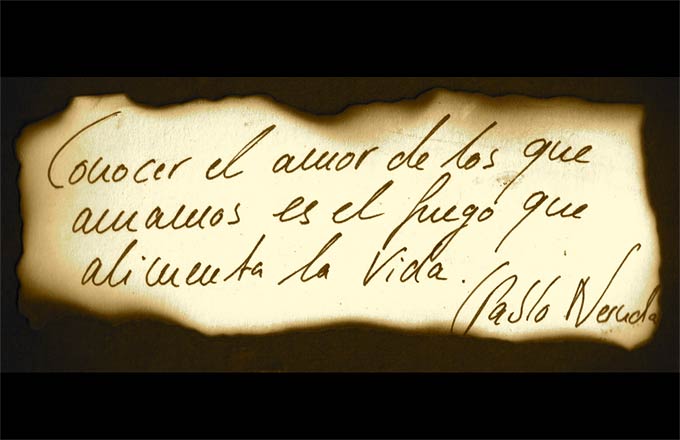 Conocer el amor de los que
amamos es el fuego que
alimenta la vida.
(Pablo Neruda